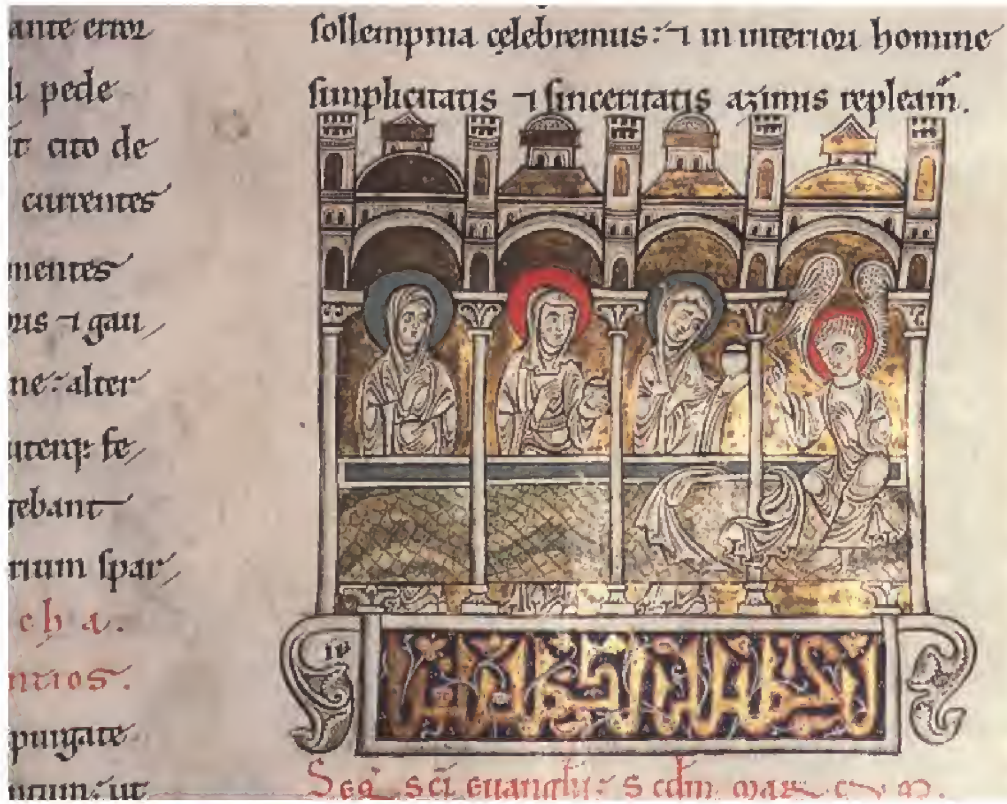 ante error
li pede
cito de
currentes
mentes
⁊ gau
ne: alter
fe
gebant
rium spar
e h a.
ntios.
purgate
ntum: ut
sollempnia cęlebremus: ⁊ in interiori homine
simplicitatis ⁊ sinceritatis azimis repleam̄.
Seq̄ sc̄i euanglii: s cdm̄ mar